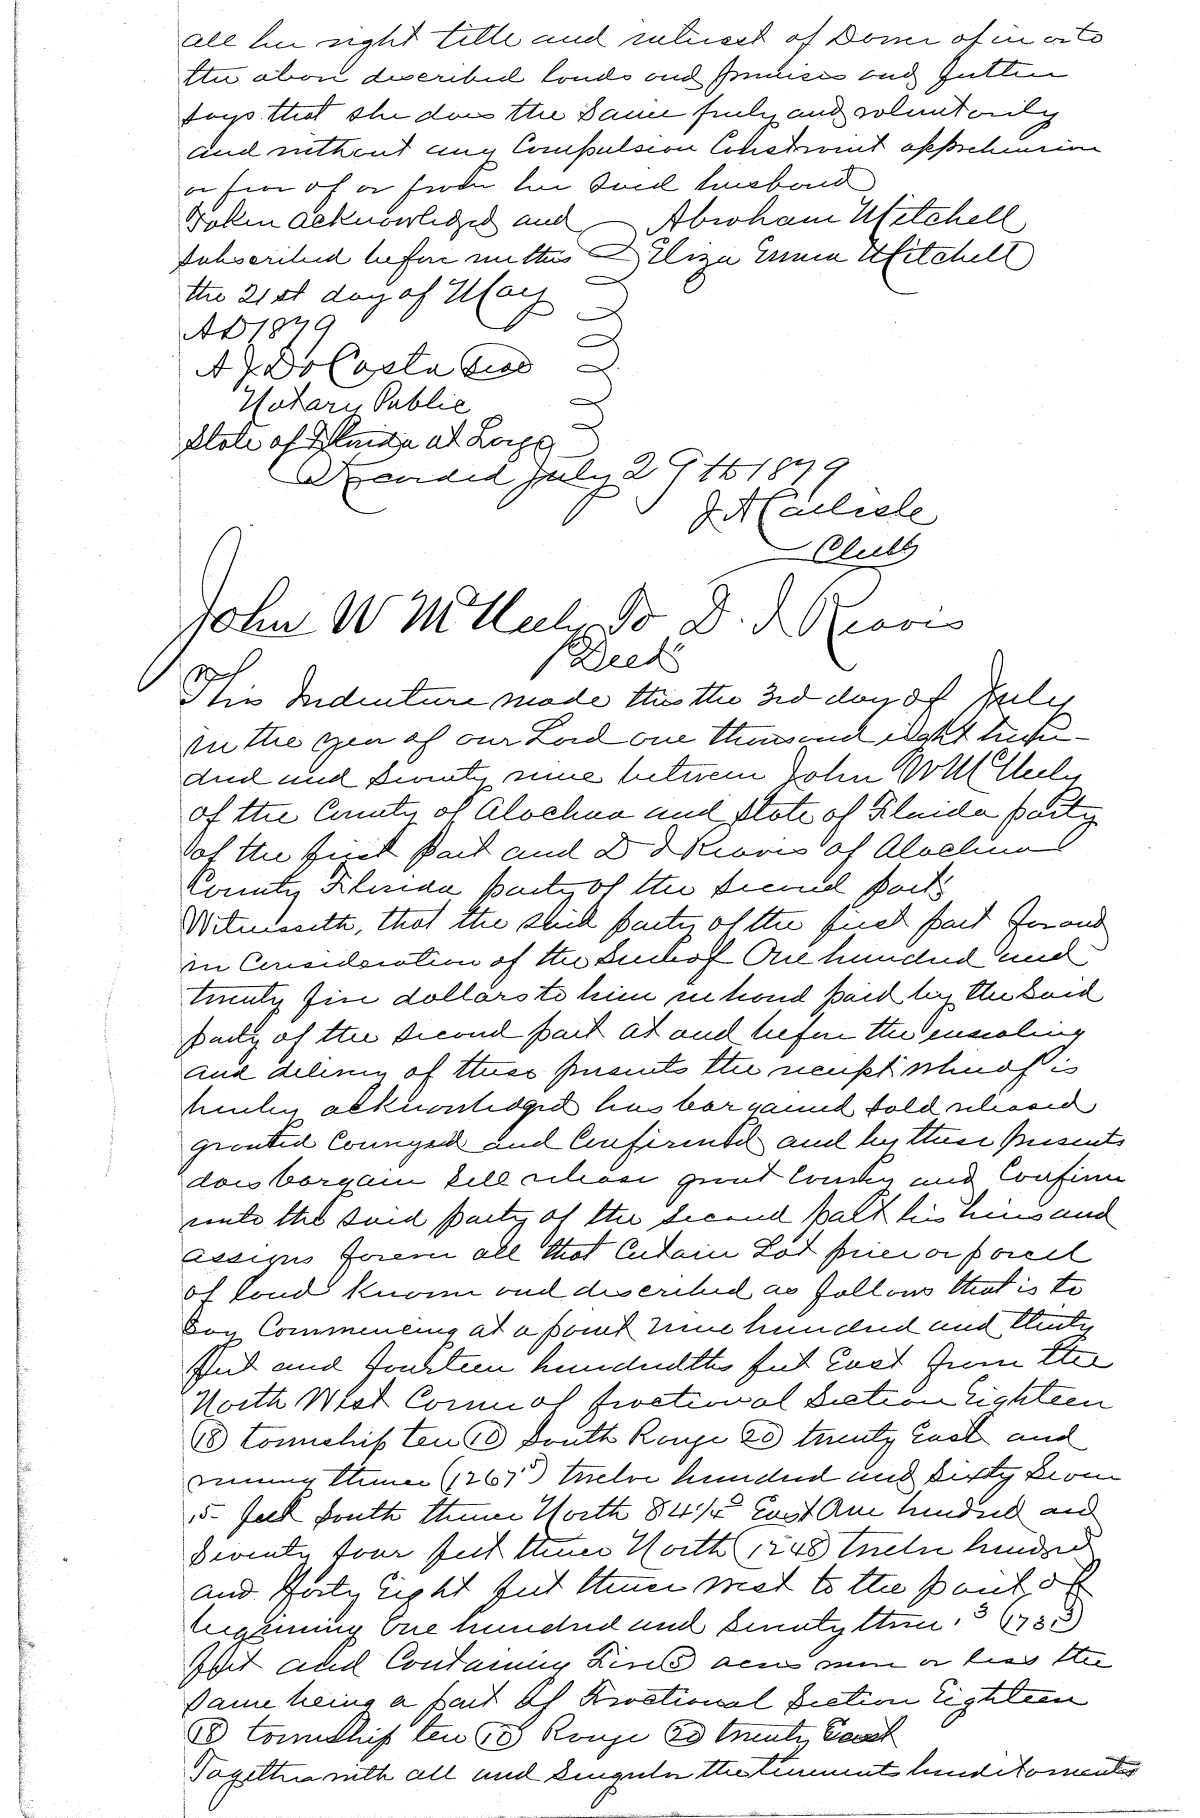 all her right title and interest of Dower of in or to
the above described lands and premises and further
says that she does the same freely and voluntarily
and without any Compulsion Constraint apprehension
or fear of or from her said husband
Taken acknowledged and Abraham Mitchell
subscribed before me this Eliza Emma Mitchell
the 21st day of May
AD 1879
A J DaCosta Seal
Notary Public
State of Florida at Large
Recorded July 29th 1879
J A Carlisle
Clerk
John W McNeely To D. I Reavis
Deed
This Indenture made this the 3rd day of July
in the year of our Lord one thousand eight hun-
dred and seventy nine between John W McNeely
of the County of Alachua and State of Florida party
of the first part and D I Reavis of Alachua
County Florida party of the second part
Witnesseth, that the said party of the first part for and
in Consideration of the Sum of One hundred and
twenty five dollars to him in hand paid by the said
party of the second part at and before the ensealing
and delivery of these presents the receipt whereof is
hereby acknowledged has bargained sold released
granted Conveyed and Confirmed and by these presents
does bargain sell release grant Convey and Confirm
unto the said party of the second part his heirs and
assigns forever all that Certain Lot piece or parcel
of land known and described as follows that is to
say Commencing at a point nine hundred and thirty
feet and fourteen hundredths feet East from the
North West Corner of fractional Section Eighteen
(18) township ten (10) South Range 20 twenty East and
runing thence (1267 5) twelve hundred and sixty seven
.5 feet South thence North 84 1/4° East One hundred and
seventy four feet thence North (1248) twelve hundred
and forty Eight feet thence west to the point of
beginning One hundred and seventy three .3 (173.3)
feet and Containing Five (5) acres more or less the
same being a part of Fractional Section Eighteen
(18) township ten (10) Range 20 twenty East
Together with all and singular the tenements hereditaments